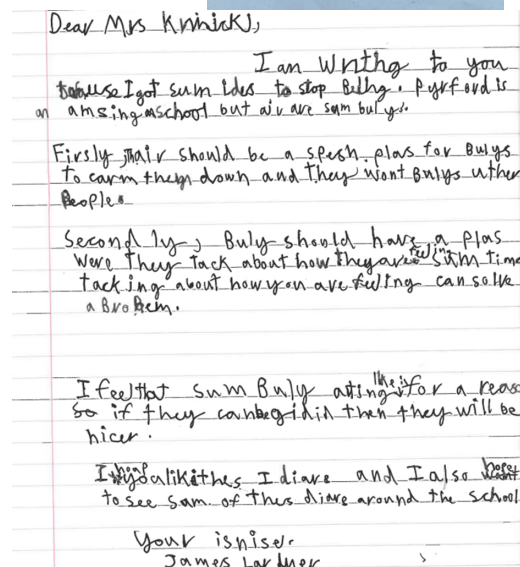 Dear Mrs
I am writhg to you
I got sum ides to stop Bulhg. Pyrford is
an amsing school but air are sum bulys.
Firsly thair should be a spesh plas for Bulys
to carm them down and they wont Bulys uther
People.
Secondly, Buly should have a plas
were they tack about how they are feeling sum time
tacking about how you are feeling can solve
a Broblem.
I feel that sum Buly acting like is for a reas
So if they can then they will be
nicer.
I and I also hope
to see sum of thes around the school
Your isniser.
James Lardner